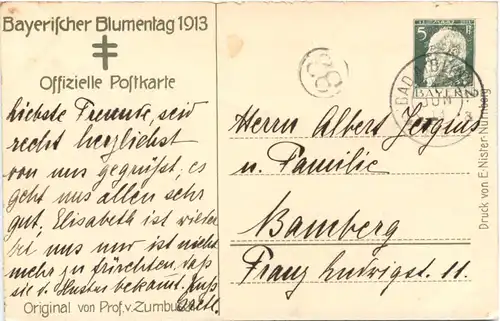 Bayerischer Blumentag 1913
Offizielle Postkarte
Liebste Freunde, seid
recht herzlichst
von uns gegrüßt, es
geht uns allen sehr
gut, Elisabeth ist wieder
bei uns nur ist nicht
mehr zu fürchten, daß
sie d. Husten bekomt. Gruß
Original von Prof. v. Zumbusch
5
BAYERN
BAD
JUN
82
Herrn Albert Jergius
u. Familie
Bamberg
Franz Ludwigst. 11.
Druck von E. Nister Nürnberg